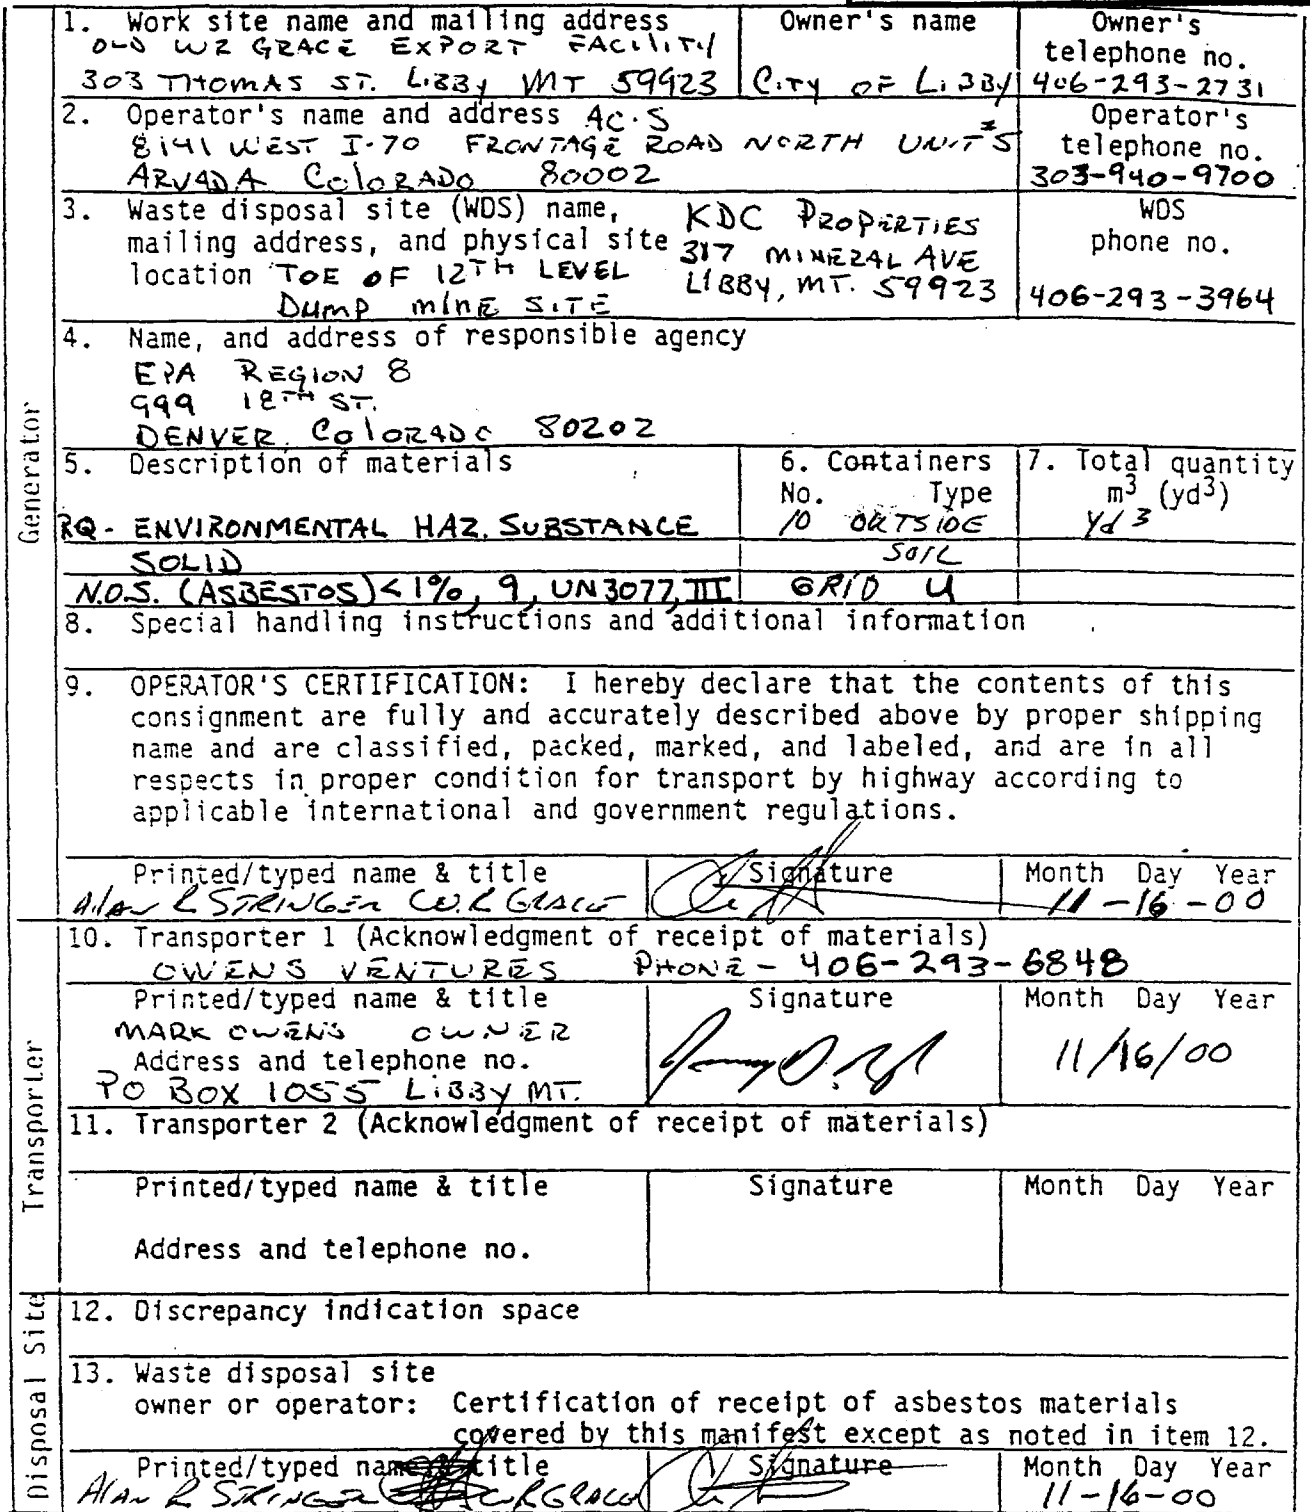 1. Work site name and mailing address
OLD WR GRACE EXPORT FACILITY
303 THOMAS ST. LIBBY MT 59923
Owner's name
CITY OF LIBBY
Owner's
telephone no.
406-293-2731
2. Operator's name and address AC·S
8141 WEST I-70 FRONTAGE ROAD NORTH UNIT #5
ARVADA COLORADO 80002
Operator's
telephone no.
303-940-9700
3. Waste disposal site (WDS) name,
mailing address, and physical site
location TOE OF 12TH LEVEL
DUMP MINE SITE
KDC PROPERTIES
317 MINERAL AVE
LIBBY, MT. 59923
WDS
phone no.
406-293-3964
Generator
4. Name, and address of responsible agency
EPA REGION 8
999 18TH ST.
DENVER. COLORADO 80202
5. Description of materials
RQ - ENVIRONMENTAL HAZ. SUBSTANCE
SOLID
N.O.S. (ASBESTOS) <1%, 9, UN3077, III
6. Containers
No. Type
10 OUTSIDE
SOIL
GRID U
7. Total quantity
m3 (yd3)
Yd 3
8. Special handling instructions and additional information
9. OPERATOR'S CERTIFICATION: I hereby declare that the contents of this
consignment are fully and accurately described above by proper shipping
name and are classified, packed, marked, and labeled, and are in all
respects in proper condition for transport by highway according to
applicable international and government regulations.
Printed/typed name & title
Alan R STRINGER W.R GRACE
Signature
Month Day Year
11-16-00
Transporter
10. Transporter 1 (Acknowledgment of receipt of materials)
OWENS VENTURES PHONE - 406-293-6848
Printed/typed name & title
MARK OWENS OWNER
Address and telephone no.
PO BOX 1055 LIBBY MT.
Signature
Month Day Year
11/16/00
11. Transporter 2 (Acknowledgment of receipt of materials)
Printed/typed name & title
Signature
Month Day Year
Address and telephone no.
Disposal Site
12. Discrepancy indication space
13. Waste disposal site
owner or operator: Certification of receipt of asbestos materials
covered by this manifest except as noted in item 12.
Printed/typed name & title
Alan R STRINGER W R GRACE
Signature
Month Day Year
11-16-00